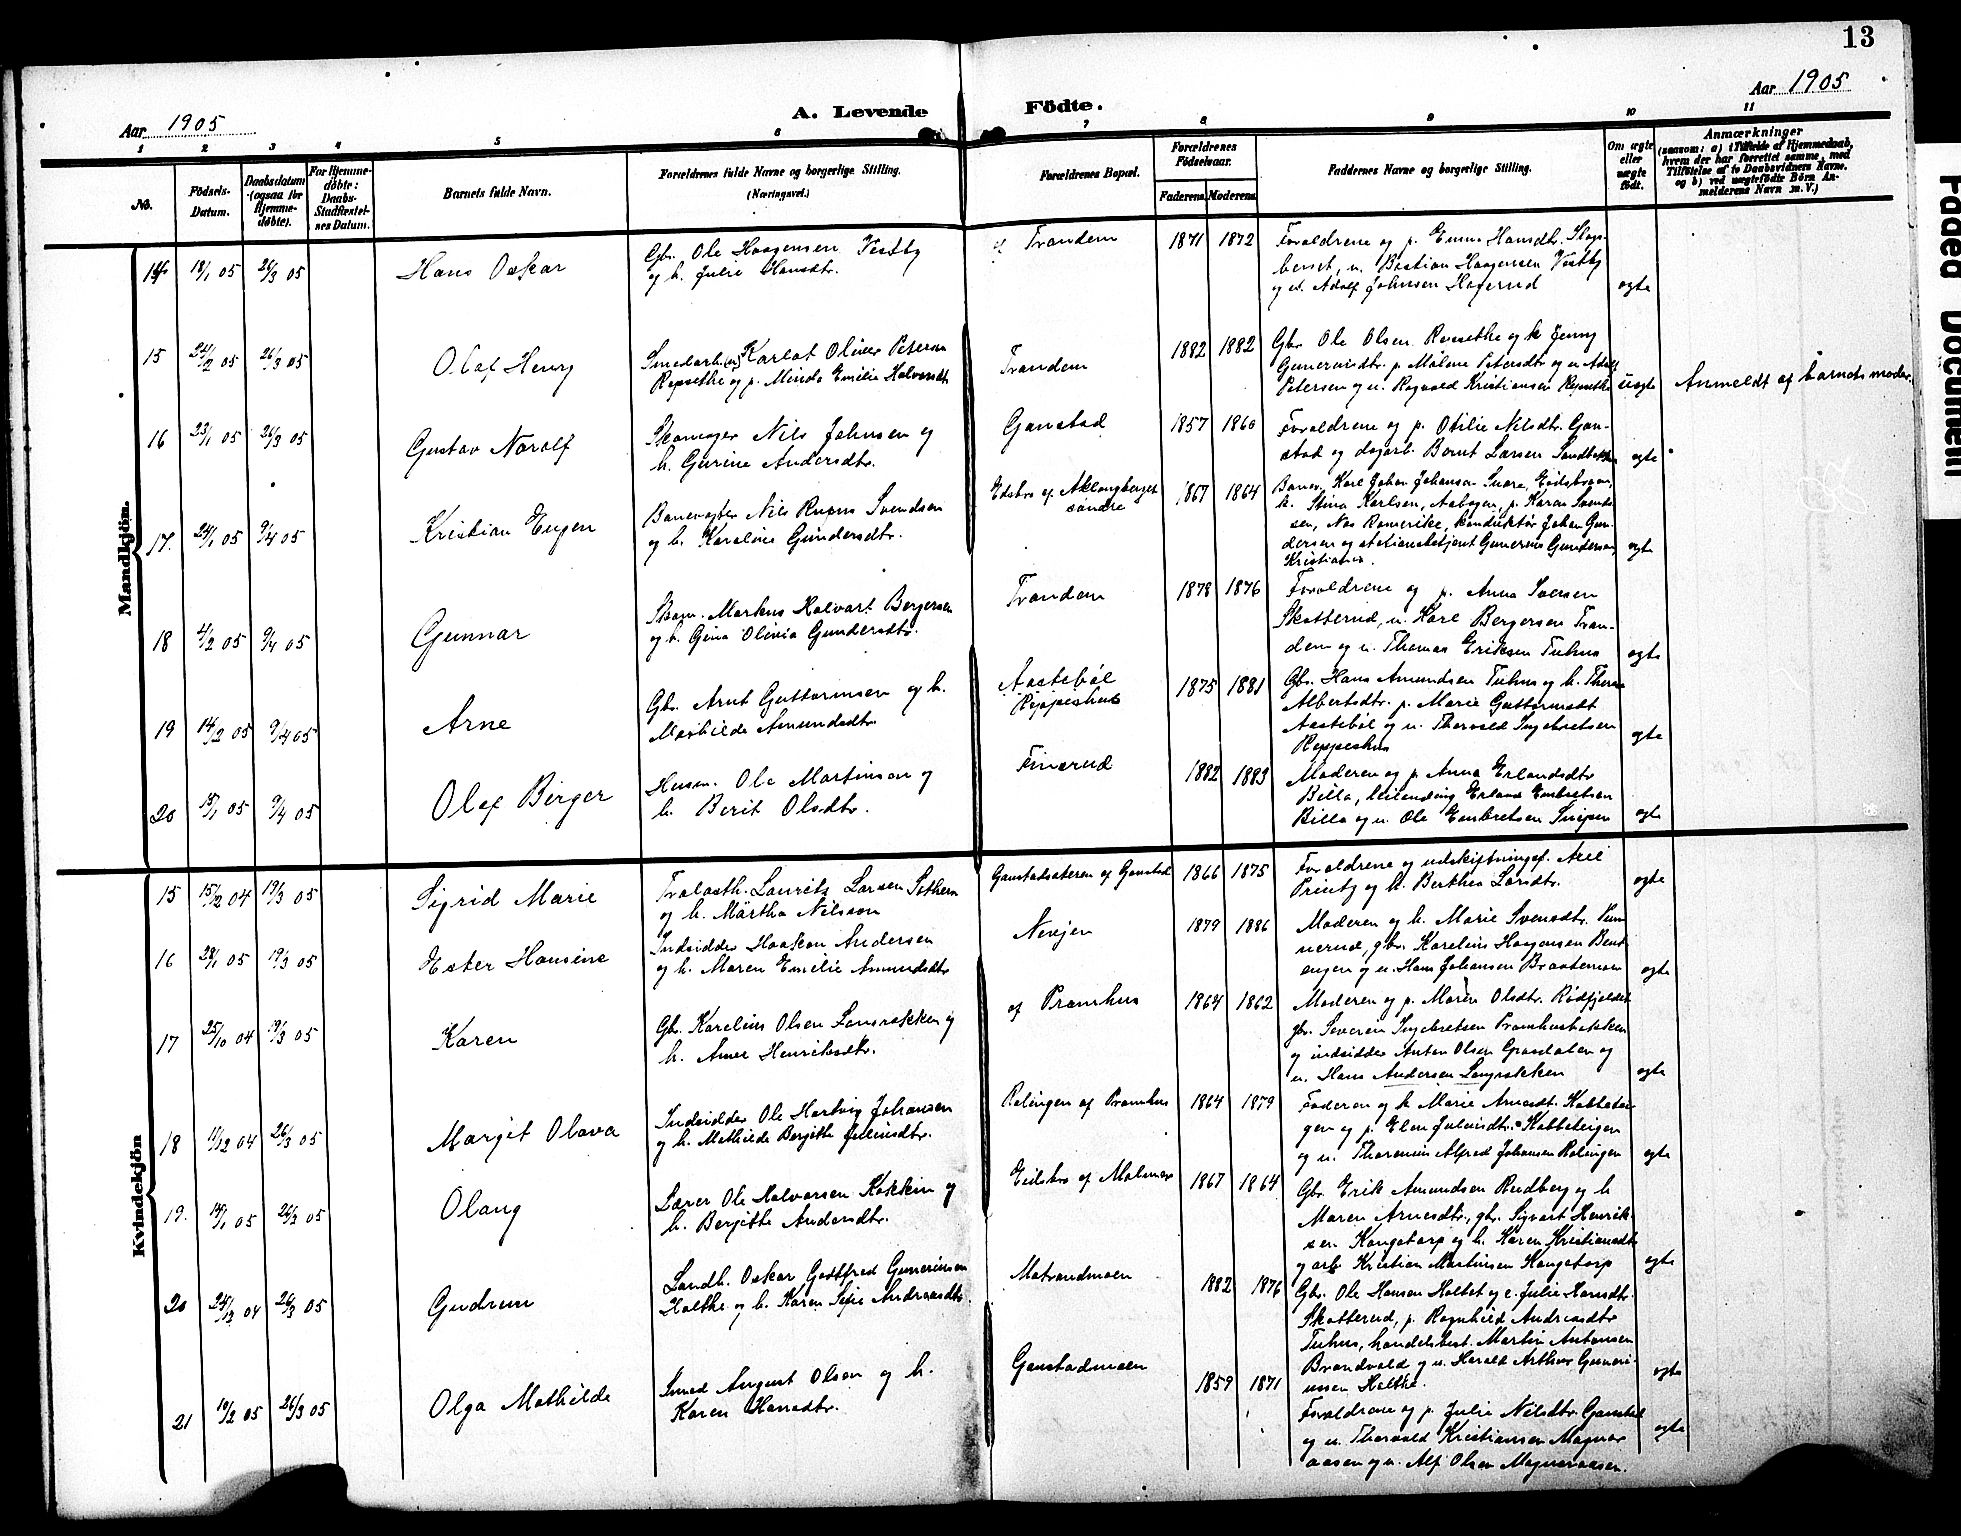 13
Aar 1905
A. Levende Födte.
Aar 1905
1 2 3 4 5 6 7 8 9 10 11
No.
Födsels-
Datum.
Daabsdatum
(ogsaa for
Hjemme-
döbte).
For Hjemme-
döbte:
Daabs-
Stadfæstel-
ses Datum.
Barnets fulde Navn.
Forældrenes fulde Navne og borgerlige Stilling.
(Næringsvei.)
Forældrenes Bopæl.
Forældrenes
Födselsaar.
Faderens Moderens
Faddernes Navne og borgerlige Stilling.
Om ægte
eller
uægte
født.
Anmærkninger
(saasom: a) i Tilfælde af Hjemmedaab,
hvem der har forrettet samme, med
Tilföielse af to Daabsvidners Navne.
og b) ved uægtefödte Börn An-
melderens Navn m. V.)
Mandkjön.
14 18/1 05 26/3 05 Hans Oskar
Gbr. Ole Haagensen Vestby
og h. Julie Hansdtr.
af Trandem 1871 1872
Forældrene og p. Emma Hansdtr. Skogs-
berset, u. Bastian Haagensen Vestby
og u. Adolf Johnsen Hagerud ægte
15 24/2 05 26/3 05 Olaf Henry
Smedarb. (u) Karlot Oliver Petersen
Repsethe og p. Minda Emilie Halvorsdtr
Trandem 1882 1882
Gbr. Ole Olsen Repsethe og k Jenny
Gunerusdtr. p. Malene Petersdtr og u. Adolf
Petersen og u. Ragvald Kristiansen Repsethe uægte Anmeldt af barnets moder.
16 23/1 05 26/3 05 Gustav Noralf
Skomager Nils Johnsen og
h. Gurine Andersdtr.
Ganstad 1857 1860
Forældrene og p. Otilie Nilsdtr. Gan-
stad og dagarb. Bernt Larsen Sandbakken ægte
17. 24/1 05 9/4 05 Kristian Eugen
Banevogter Nils Rupus Svendsen
og h. Karoline Gundersdtr.
Eidsbro af Aklangberget
søndre 1867 1864
Banev. Karl Johan Johansen Snare, Eidsbraaen,
h. Stina Karlsen, Aabogen, p. Karen Svend-
sen, Nas Romerike, konduktør Johan Gun-
dersen og stationsbetjent Gunerius Gundersen,
Kristiania. ægte
18 4/2 05 9/4 05 Gunnar
Skom. Markus Halvart Bergersen
og h. Gina Olivia Gundersdtr.
Trandem 1878 1876
Forældrene og p. Anna Iversen
Skotterud, u. Karl Bergersen Tran-
dem og u. Thomas Eriksen Tuhus ægte
19 14/2 05 9/4 05 Arne
Gbr. Arnt Guttormsen og h.
Mathilde Amundsdtr.
Aastebøl
Reppeshus 1875 1881
Gbr. Hans Amundsen Tuhus og h. Thea
Albertsdtr. p. Marie Guttormsdt
Aastebøl og u. Thorvald Ingebretsen
Reppeshus ægte
20 15/1 05 9/4 05 Olaf Birger
Husm. Ole Martinsen og
h. Berit Olsdtr.
Finerud 1882 1883
Moderen og p. Anna Erlandsdtr
Billa, leilending Erland Embretsen
Billa og u. Ole Embretsen Snipen ægte
Kvindekjön
15 15/12 04 19/3 05 Sigrid Marie
Tralasth. Laurits Larsen Sethern
og h. Märtha Nilsson
Ganstadsæteren af Ganstad 1866 1875
Forældrene og udskiftningsf. Axel
Printz og h. Berthea Larsdtr. ægte
16 28/1 05 19/3 05 Ester Hansine
Indsidder Haakon Andersen
og h. Maren Emilie Amundsdtr
Nevjen 1879 1886
Moderen og h. Marie Svensdtr.
nerud, gbr. Karelius Haagensen Bent-
engen og u. Hans Johansen Braatemoen ægte
17 25/10 04 19/3 05 Karen
Gbr. Karelius Olsen Langrækken og
h. Anne Henriksdtr.
af Pramhus 1864 1862
Moderen og p. Maren Olsdtr. Rødfjeldet
gbr. Severin Ingebretsen Pramhusbakken
og indsidder Anton Olsen Graadalen og
u. Hans Andersen Langrækken ægte
18 11/12 04 26/3 05 Margit Olava
Indsidder Ole Hartvig Johansen
og h. Mathilde Bergitte Juliusdtr.
Ralingen af Pramhus 1864 1879
Faderen og h Marie Arnesdt. Kabbetei-
gen og p. Elen Juliusdtr. Kabbeteigen
og u. Thorenius Alfred Johansen Ralingen ægte
19. 14/1 05 26/3 05 Olaug
Lærer Ole Halvorsen Kokkin og
h. Bergitte Andersdtr.
Eidsbro af Malmer 1867 1864
Gbr. Erik Amundsen Rudberg og h
Maren Arnesdtr., gbr. Sigvart Henrik-
sen Kongstorp og h. Karen Kristiansdtr
og arb. Kristian Martinsen Kongstorp ægte
20 24/12 04 26/3 05 Gudrun
Landh. Oskar Godtfred Gunerinsen
Holthe og h. Karen Sofie Andreasdtr.
Matrandmoen 1882 1876
Gbr. Ole Hansen Holtet og e. Julie Hansdtr.
Skotterud, p. Ragnhild Andreasdtr
Tuhus, handelsbest. Martin Antonsen
Brandvold og u. Harald Arthur Guneri-
ussen Holthe. ægte
21 19/2 05 26/3 05 Olga Mathilde
Smed August Olsen og h.
Karen Hansdtr.
Ganstadmoen 1859 1871
Forældrene og p. Julie Nilsdtr. Ganstad
og u. Thorvald Kristiansen Magnor-
aasen og u. Alf Olsen Magnoraasen. ægte
Faded Document